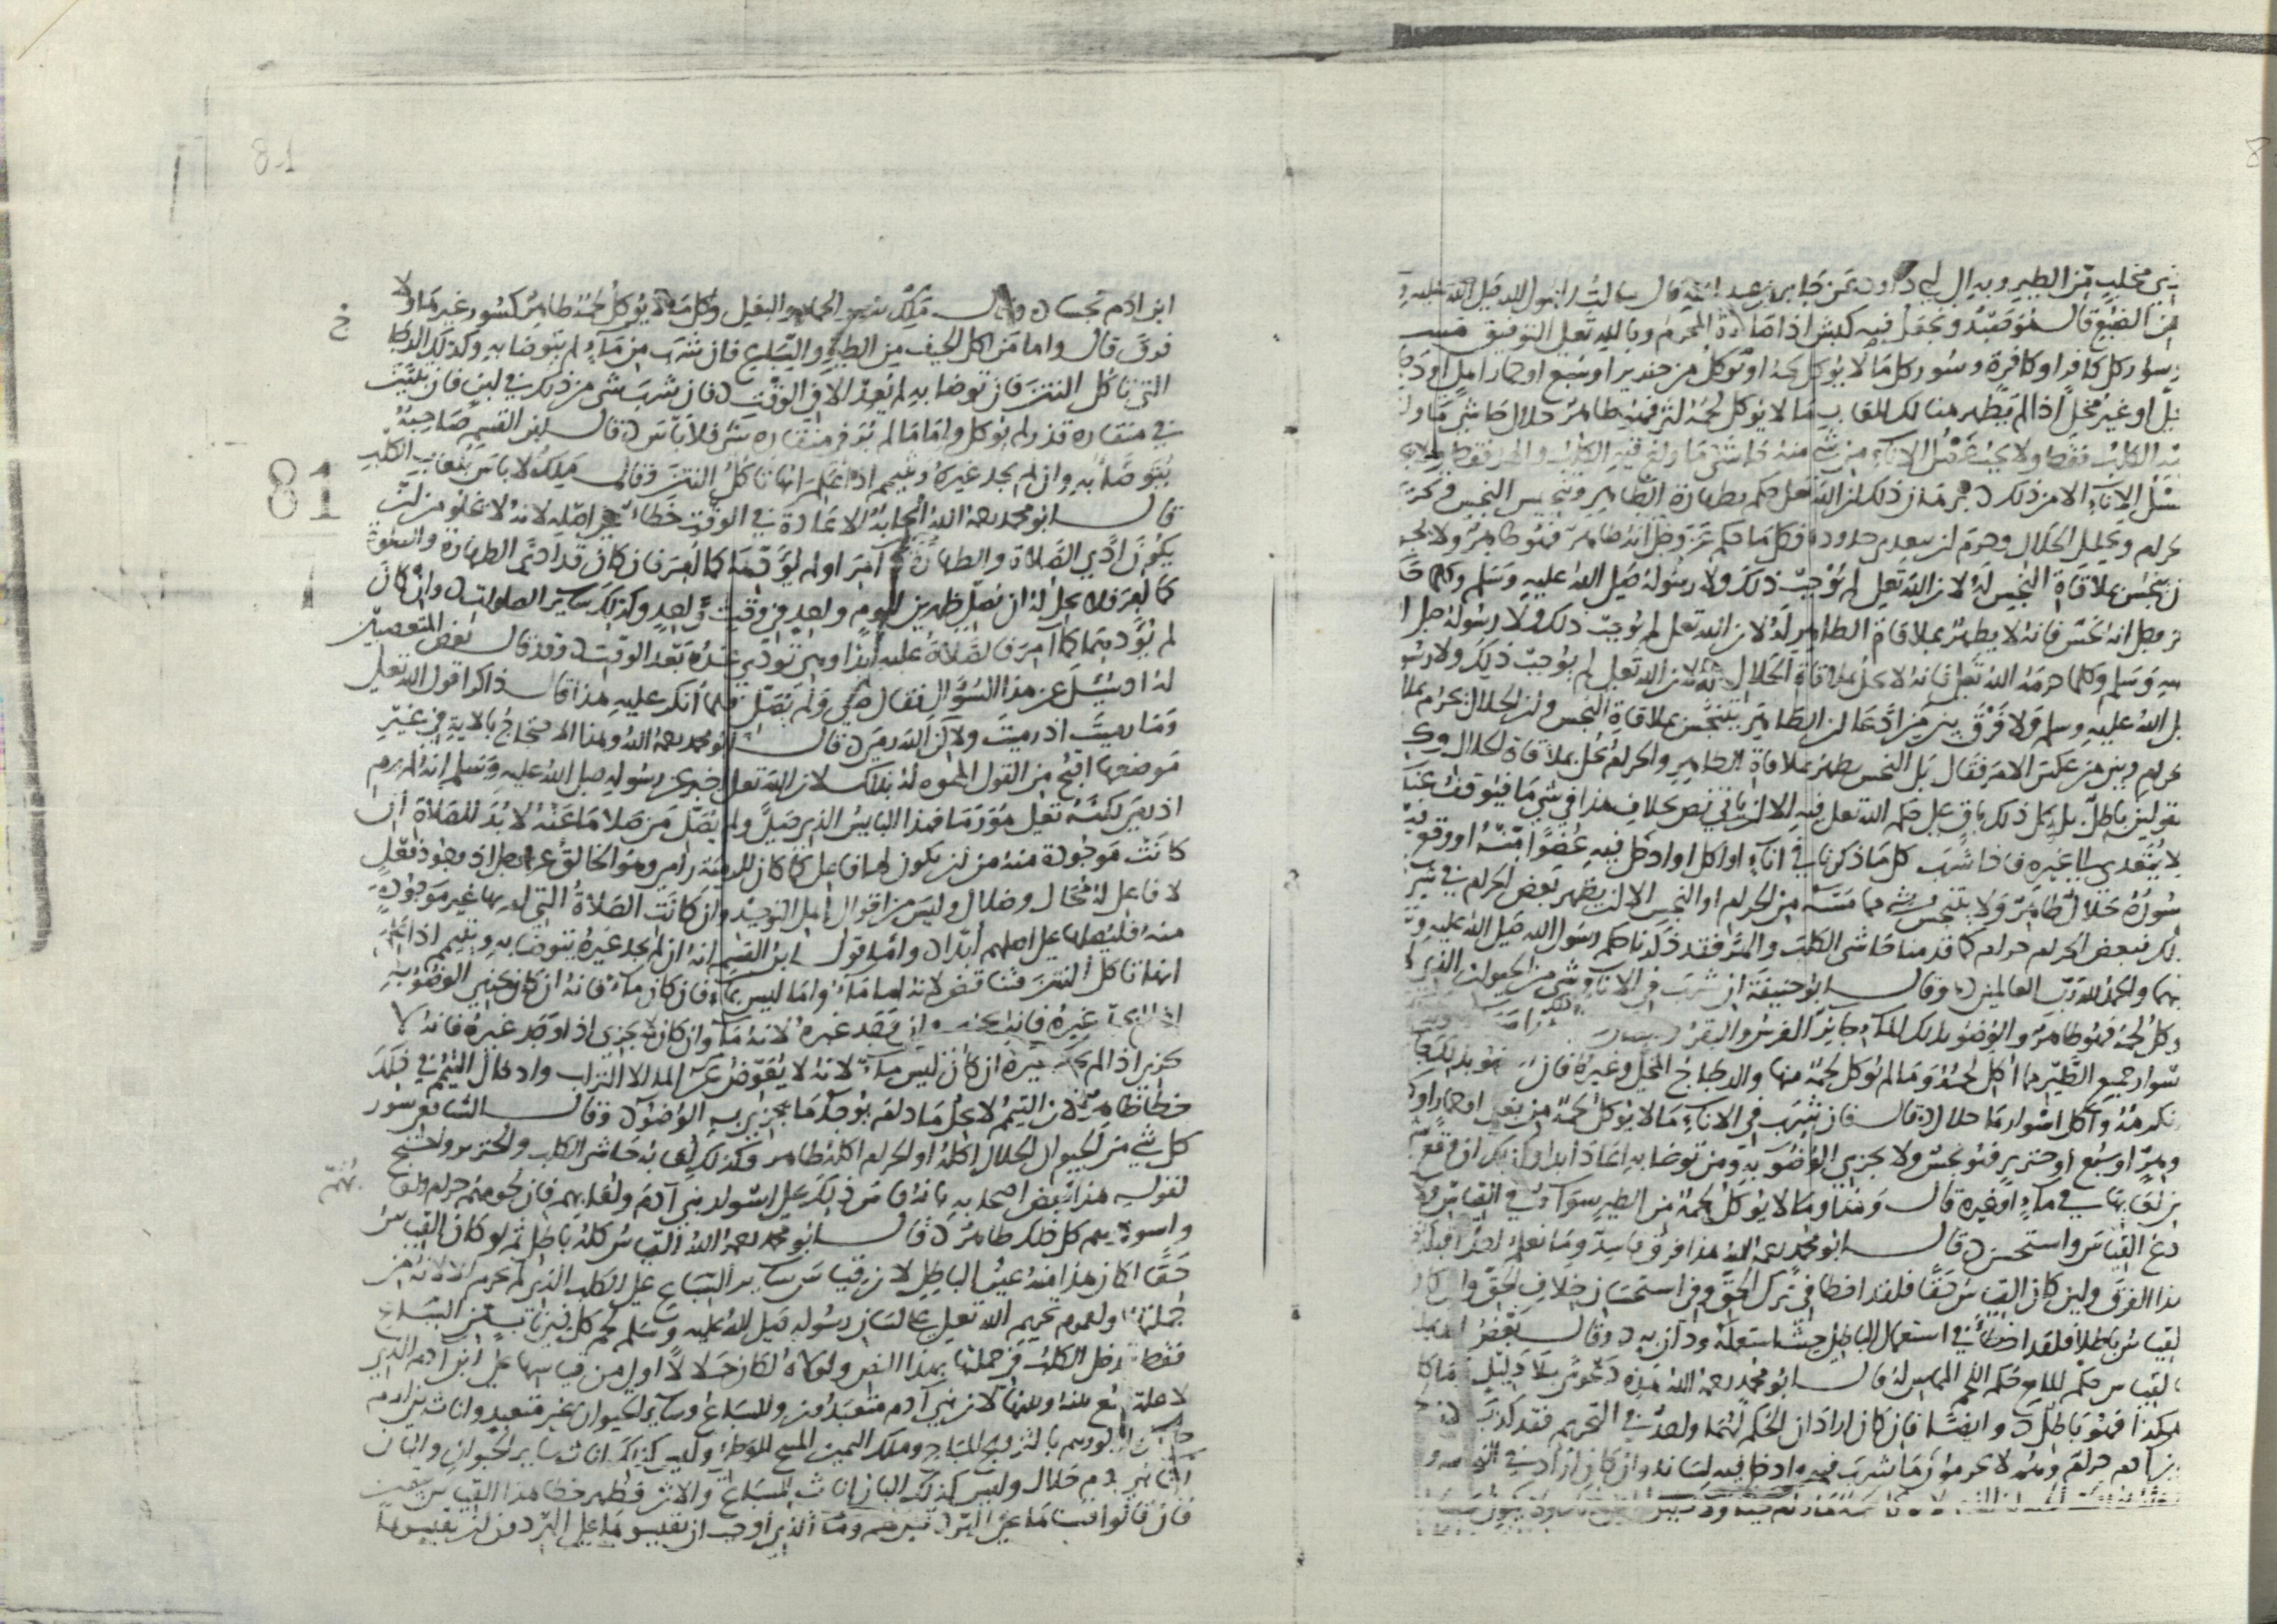 ذي مخلب من الطير وبه الى ابي داود عن جابر بن عبد الله قال سالت رسول الله صلى الله عليه و
عن الضبع قال هو صيد ويجعل فيه كبش اذا صاده المحرم وبالله تعلى التوفيق مسـ
وسوار كل كافر او كافرة وسور كل ما لا يوكل لحمه او يوكل من خنزير او سبع او حمار اهلي او دجا
مخلى او غير مخلى اذا لم يظهر هنالك للعاب ما لا يوكل لحمه اثر فهو طاهر حلال حاشى ما ولغ
فيه الكلب فقط ولا يجب غسل الاناء من شيء منه حاشى ما ولغ فيه الكلب والهر فقط
غسل الاناء الا من ذلك برهان ذلك ان الله تعلى حكم بطهارة الطاهر وتنجيس النجس وتحريم
الحرام وتحليل الحلال وحرم ان تتعدى حدوده فكل ما حكم عز وجل انه طاهر فهو طاهر ولا يجوز
ان يتنجس بملاقاة النجس له لان الله تعلى لم يوجب ذلك ولا رسوله صلى الله عليه وسلم وكل ما حكم
عز وجل انه نجس فانه لا يطهر بملاقاة الطاهر له لان الله تعلى لم يوجب ذلك ولا رسوله صلى الله
عليه وسلم وكل ما حرمه الله تعلى فانه لا يحل بملاقاة الحلال له لان الله تعلى لم يوجب ذلك ولا رسوله
صلى الله عليه وسلم ولا فرق بين من ادعا ان الطاهر يتنجس بملاقاة النجس وان الحلال يحرم بملاقاة
الحرام وبين من عكس الامر فقال بل النجس يطهر بملاقاة الطاهر والحرام يحل بملاقاة الحلال
القولين باطل بل كل ذلك باق على حكم الله تعلى فيه الا ان ياتي نص بخلاف هذا في شي ما فيوقف عنده
لا يتعدى الى غيره فاذا شرب كل ما ذكرنا في اناء او اكل او ادخل فيه عضوا منه او وقع فيه
سوره حلال طاهر ولا يتنجس بشي مما مسه من الحرام او النجس الا ان يظهر بعض الحرام في شي
ذلك فبعض الحرام حرام كما قدمنا حاشى الكلب والهر فقد ذكرنا حكم رسول الله صلى الله عليه و
فيهما والحمد لله رب العالمين وقال ابو حنيفة ان شرب في الاناء شي من الحيوان الذي
يوكل لحمه فهو طاهر والوضوء بذلك الماء جايز الفرس والبقر
سوار جميع الطير ما اكل لحمه وما لم يوكل لحمه منها والدجاج المخلى وغيره فان
نكرهه واكل اسوارها حلال قال فان شرب في الاناء ما لا يوكل لحمه من بغل او حمار او كلب
وهر او سبع او خنزير فهو نجس ولا يجزي الوضوء به ومن توضا به اعاد ابدا وكذلك ان وقع
من لعابها في ماء او غيره قال وهذا وما لا يوكل لحمه من الطير سواء في القياس
ادع القياس واستحسن قال ابو محمد رحمه الله هذا فرق فاسد وما نعلم احدا قبله
هذا الفرق ولين كان القياس حقا فلقد اخطا في ترك الحق وفي استحسان خلاف الحق ولين كان
القياس باطلا فلقد اخطا في استعمال الباطل حيث استعمله ودان به وقال بعض
القياس حكم المايع حكم اللحم المماس له قال ابو محمد رحمه الله هذه دعوى بلا دليل وما كان
هكذا فهو باطل وايضا فان كان اراد ان الحكم لهما واحد في التحريم فقد كذب
بني ادم حرام وهم لا يحرمون ما شرب فيه او ادخل فيه لسانه وان كان اراد في
ابن ادم نجسا وقال ملك سور الحمار والبغل وكل ما لا يوكل لحمه طاهر كسور غيره ولا
فرق قال واما من اكل الجيف من الطير والسباع فان شرب من ماء لم يتوضا به وكذلك الدجاج
التي تاكل النتن فان توضا به لم يعد الا في الوقت فان شرب شي من ذلك في لبن فان تبين
في منقاره قذر لم يوكل واما ما لم ير في منقاره شر فلا باس قال ابن القسم صاحبه
يتوضا به وان لم يجد غيره ويتيمم اذا علم انها تاكل النتن وقال ملك لا باس بلعاب الكلب
قال ابو محمد رحمه الله ايجابه الاعادة في الوقت خطا على اصله لانه لا يخلو من ان
يكون ادى الصلاة والطهارة كما امر او لم يؤدهما كما امر فان كان قد ادى الطهارة والصلاة
كما امر فلا يحل له ان يصلي ظهرين ليوم واحد في وقت واحد وكذلك ساير الصلوات وان كان
لم يؤدهما كما امر فالصلاة عليه ابدا وهي تودى عنده بعد الوقت وقد قال بعض المتعصبين
له اذ سيل عن هذا السؤال فقال صلى ولم يصل فلما انكر عليه هذا قال ذاكرا قول الله تعلى
وما رميت اذ رميت ولكن الله رمى قال ابو محمد رحمه الله وهذا الاحتجاج بالاية في غير
موضعها اقبح من القول المموه له بذلك لان الله تعلى اخبر عن رسوله صلى الله عليه وسلم انه لم يرم
اذ رمى لكنه تعلى هو رمى فهذا البايس الذي صلى ولم يصل من صلا ما عنه لا بد للصلاة ان
كانت موجودة منه من ان يكون لها فاعل كما كان للرمية رام وهو الخالق عز وجل اذ وجود فعل
لا فاعل له محال وضلال وليس من اقوال اهل التوحيد وان كانت الصلاة التي امر بها غير موجودة
منه فليصلها على اصلهم ابدا واما قول ابن القسم انه ان لم يجد غيره توضا به ويتيمم اذا علم
انها تاكل النتن فتناقض لانه اما ماء واما ليس بماء فان كان ماء فانه ان كان يجزي الوضوء به
اذا لم يجد غيره فانه يجزيه ان وجد غيره لانه ماء وان كان لا يجزي اذا وجد غيره فانه لا
يجزي اذا لم يجد غيره ان كان ليس ماء لانه لا يعوض من الماء الا التراب وادخال التيمم في ذلك
خطا ظاهر لان التيمم لا يحل ما دام يوجد ما يجزي به الوضوء وقال الشافعي سور
كل شي من الحيوان الحلال اكله او الحرام اكله طاهر وكذلك لعابه حاشى الكلب والخنزير واحتج
لقوله هذا بعض اصحابه بانه قاس ذلك على اسوار بني آدم ولعابهم فان لحومهم حرام ولعابهم
واسوارهم كل ذلك طاهر قال ابو محمد رحمه الله القياس كله باطل ثم لو كان القياس
حقا لكان هذا منه عين الباطل لان قياس ساير السباع على الكلب الذي لم يحرم الا لانه من
جملتها ولعموم تحريم الله تعلى على لسان رسوله صلى الله عليه وسلم لحم كل ذي ناب من السباع
فقط دخل الكلب في جملتها بهذا النص ولولاه لكان حلالا اولى من قياسها على ابن ادم الذي
لا علة تجمع بينه وبينها لان بني آدم متعبدون والسباع وساير الحيوان غير متعبد واناث بني ادم
حلال لذكورهم بالتزويج المباح وملك اليمين المبيح للوطء وليس كذلك اناث ساير الحيوان والبان
اناث بني ادم حلال وليس كذلك البان اناث السباع والاتن فظهر خطا هذا القياس بيقين
فان قالوا قسناها على الهر قيل لهم وما الذي اوجب ان تقيسوها على الهر دون ان تقيسوها
81